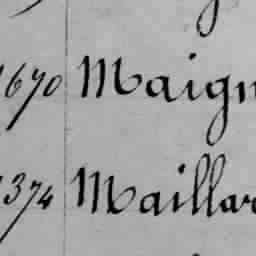 1670 Maign
1374 Maillar